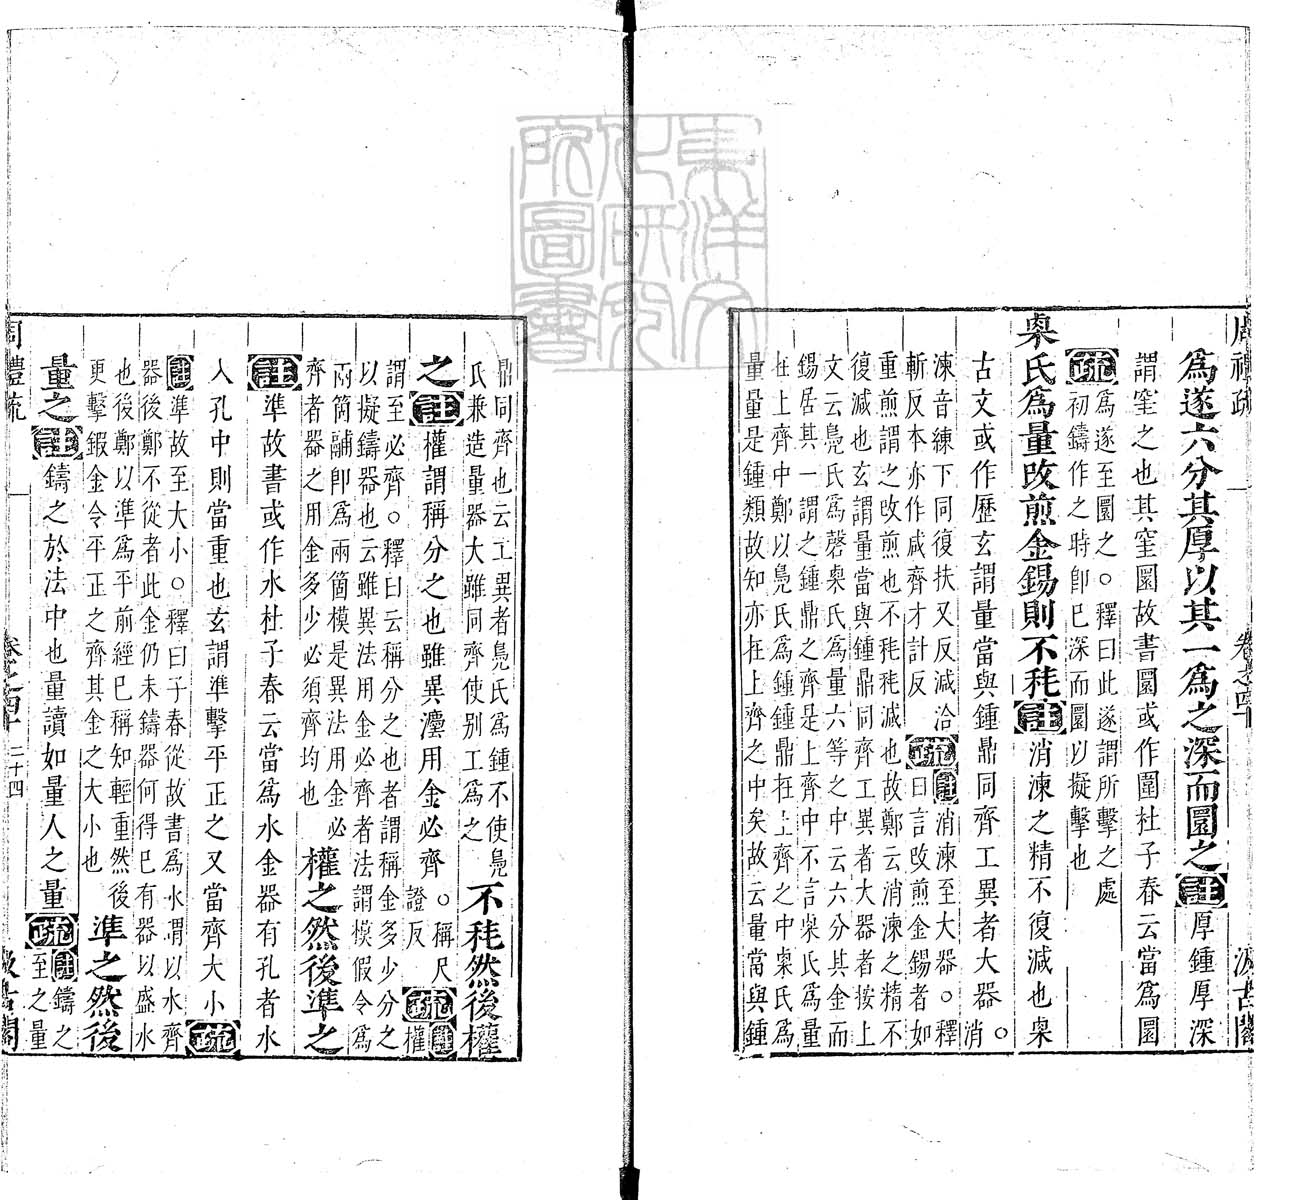 周禮疏
卷之四十
汲古閣
爲遂六分其厚以其一爲之深而圜之註厚鍾厚深
謂窒之也其窒圜故書圜或作圍杜子春云當爲圜
疏爲遂至圜之○釋曰此遂謂所擊之處
初鑄作之時即已深而圜以擬擊也
㮚氏爲量改煎金錫則不耗註消湅之精不復減也㮚
古文或作歷玄謂量當與鍾鼎同齊工異者大器○消
湅音練下同復扶又反減洽
斬反本亦作咸齊才計反
疏註消湅至大器○釋
曰言改煎金錫者如
重煎謂之改煎也不耗耗減也故鄭云消湅之精不
復減也玄謂量當與鍾鼎同齊工異者大器者按上
文云鳧氏爲磬㮚氏爲量六等之中云六分其金而
錫居其一謂之鍾鼎之齊是上齊中不言㮚氏爲量
在上齊中鄭以鳧氏爲鍾鍾鼎在上齊之中㮚氏爲
量量是鍾類故知亦在上齊之中矣故云量當與鍾
鼎同齊也云工異者鳧氏爲鍾不使鳧
氏兼造量器大雖同齊使别工爲之
不耗然後權
之註權謂稱分之也雖異灋用金必齊○稱尺
證反
疏註權
謂至必齊○釋曰云稱分之也者謂稱金多少分之
以擬鑄器也云雖異法用金必齊者法謂模假令爲
兩箇鬴即爲兩箇模是異法用金必
齊者器之用金多少必須齊均也
權之然後準之
註準故書或作水杜子春云當爲水金器有孔者水
入孔中則當重也玄謂準擊平正之又當齊大小疏
註準故至大小○釋曰子春從故書爲水謂以水齊
器後鄭不從者此金仍未鑄器何得已有器以盛水
也後鄭以準爲平前經已稱知輕重然後
更擊鍜金令平正之齊其金之大小也
準之然後
量之註鑄之於法中也量讀如量人之量疏註鑄之
至之量
周禮疏
卷之四十
二十四
汲古閣
東洋文化研究所圖書